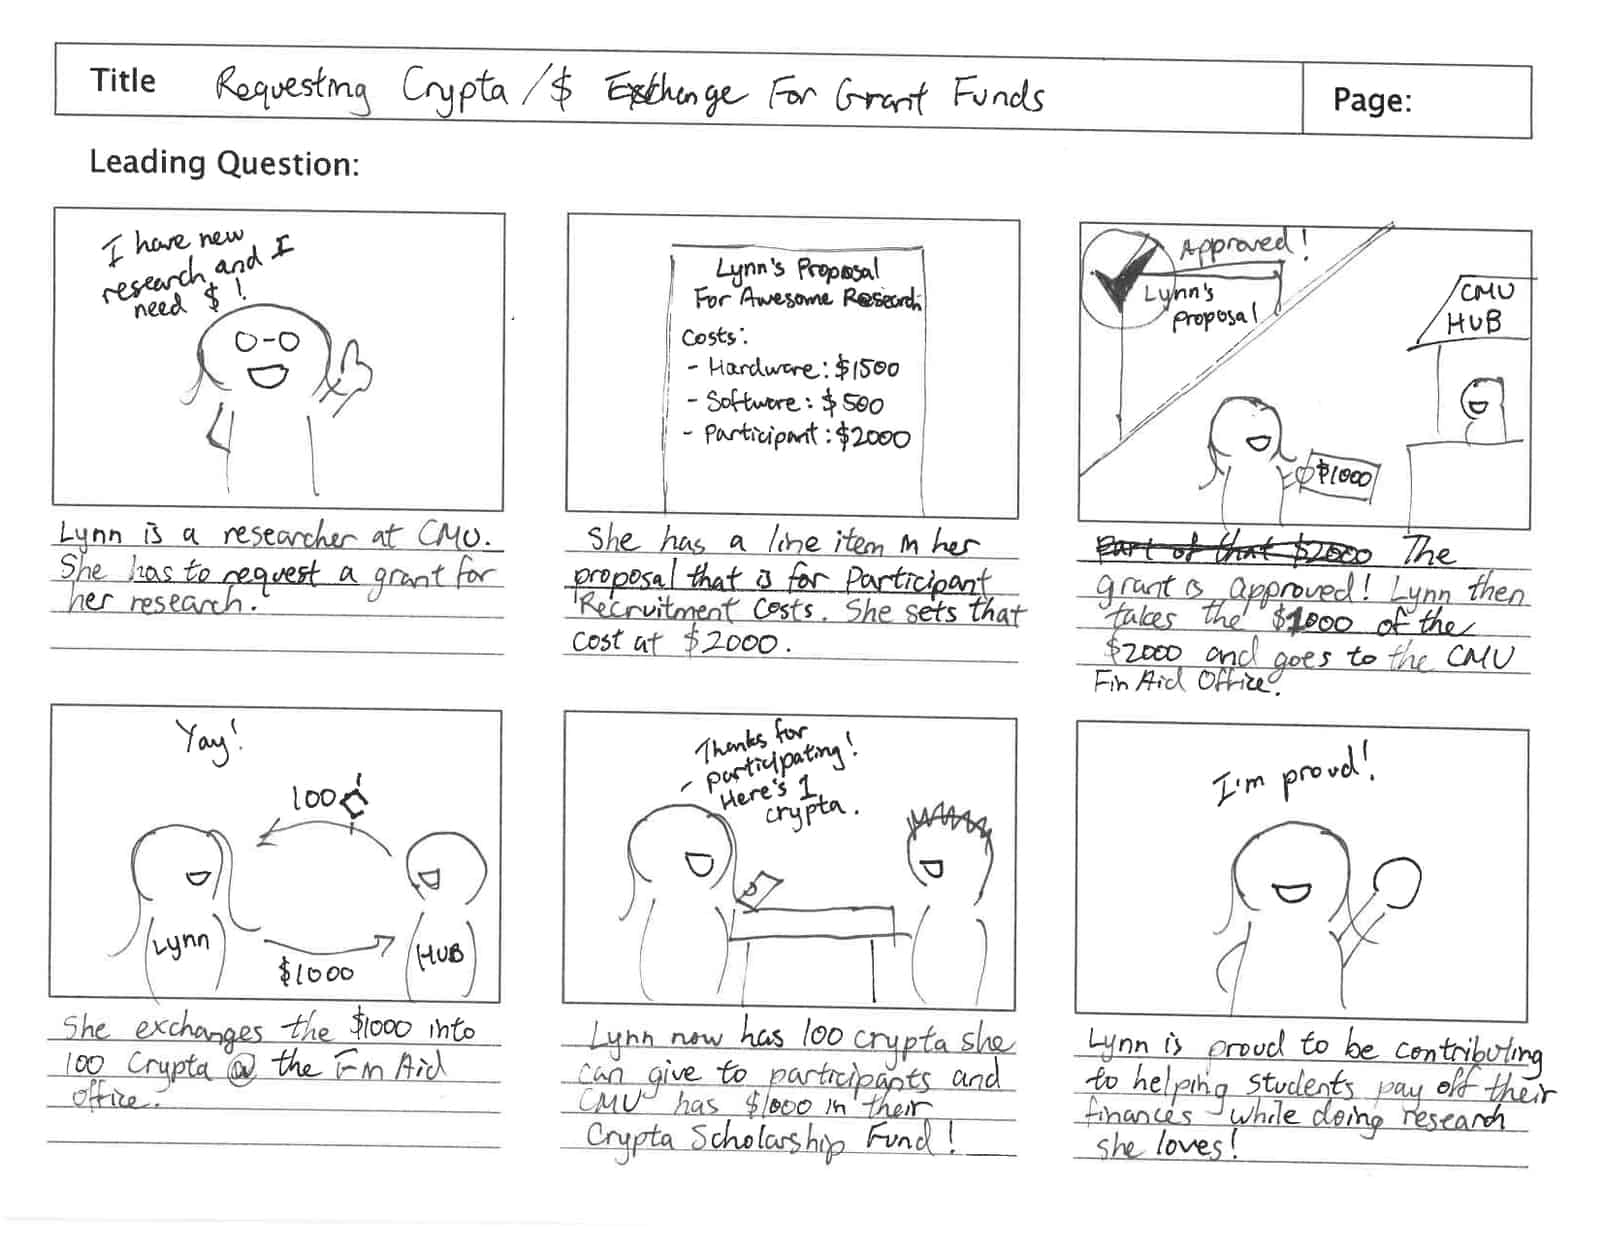 Title Requesting Crypta / $ Exchange For Grant Funds
Page:
Leading Question:
I have new
research and I
need $ !
Lynn is a researcher at CMU.
She has to request a grant for
her research.
Lynn's Proposal
For Awesome Research
Costs:
- Hardware: $1500
- Software: $500
- Participant: $2000
She has a line item in her
proposal that is for Participant
Recruitment Costs. She sets that
cost at $2000.
Approved!
Lynn's
Proposal
CMU
HUB
$1000
Part of that $2000 The
grant is approved! Lynn then
takes the $1000 of the
$2000 and goes to the CMU
Fin Aid Office.
Yay!
100
Lynn
HUB
$1000
She exchanges the $1000 into
100 Crypta @ the Fin Aid
office.
Thanks for
participating!
Here's 1
crypta.
Lynn now has 100 crypta she
can give to participants and
CMU has $1000 in their
Crypta Scholarship Fund!
I'm proud!
Lynn is proud to be contributing
to helping students pay off their
finances while doing research
she loves!